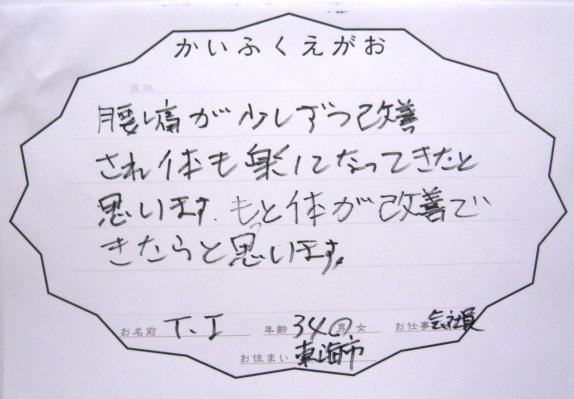 かいふくえがお
症状
腰痛が少しずつ改善
され体も楽になってきたと
思います。もっと体が改善で
きたらと思います。
お名前 T.I 年齢 34 男 女 お仕事 会社員
お住まい 東海市